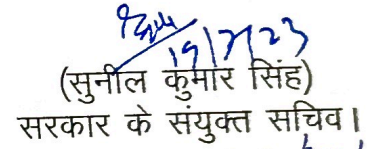 19/7/23
(सुनील कुमार सिंह)
सरकार के संयुक्त सचिव।